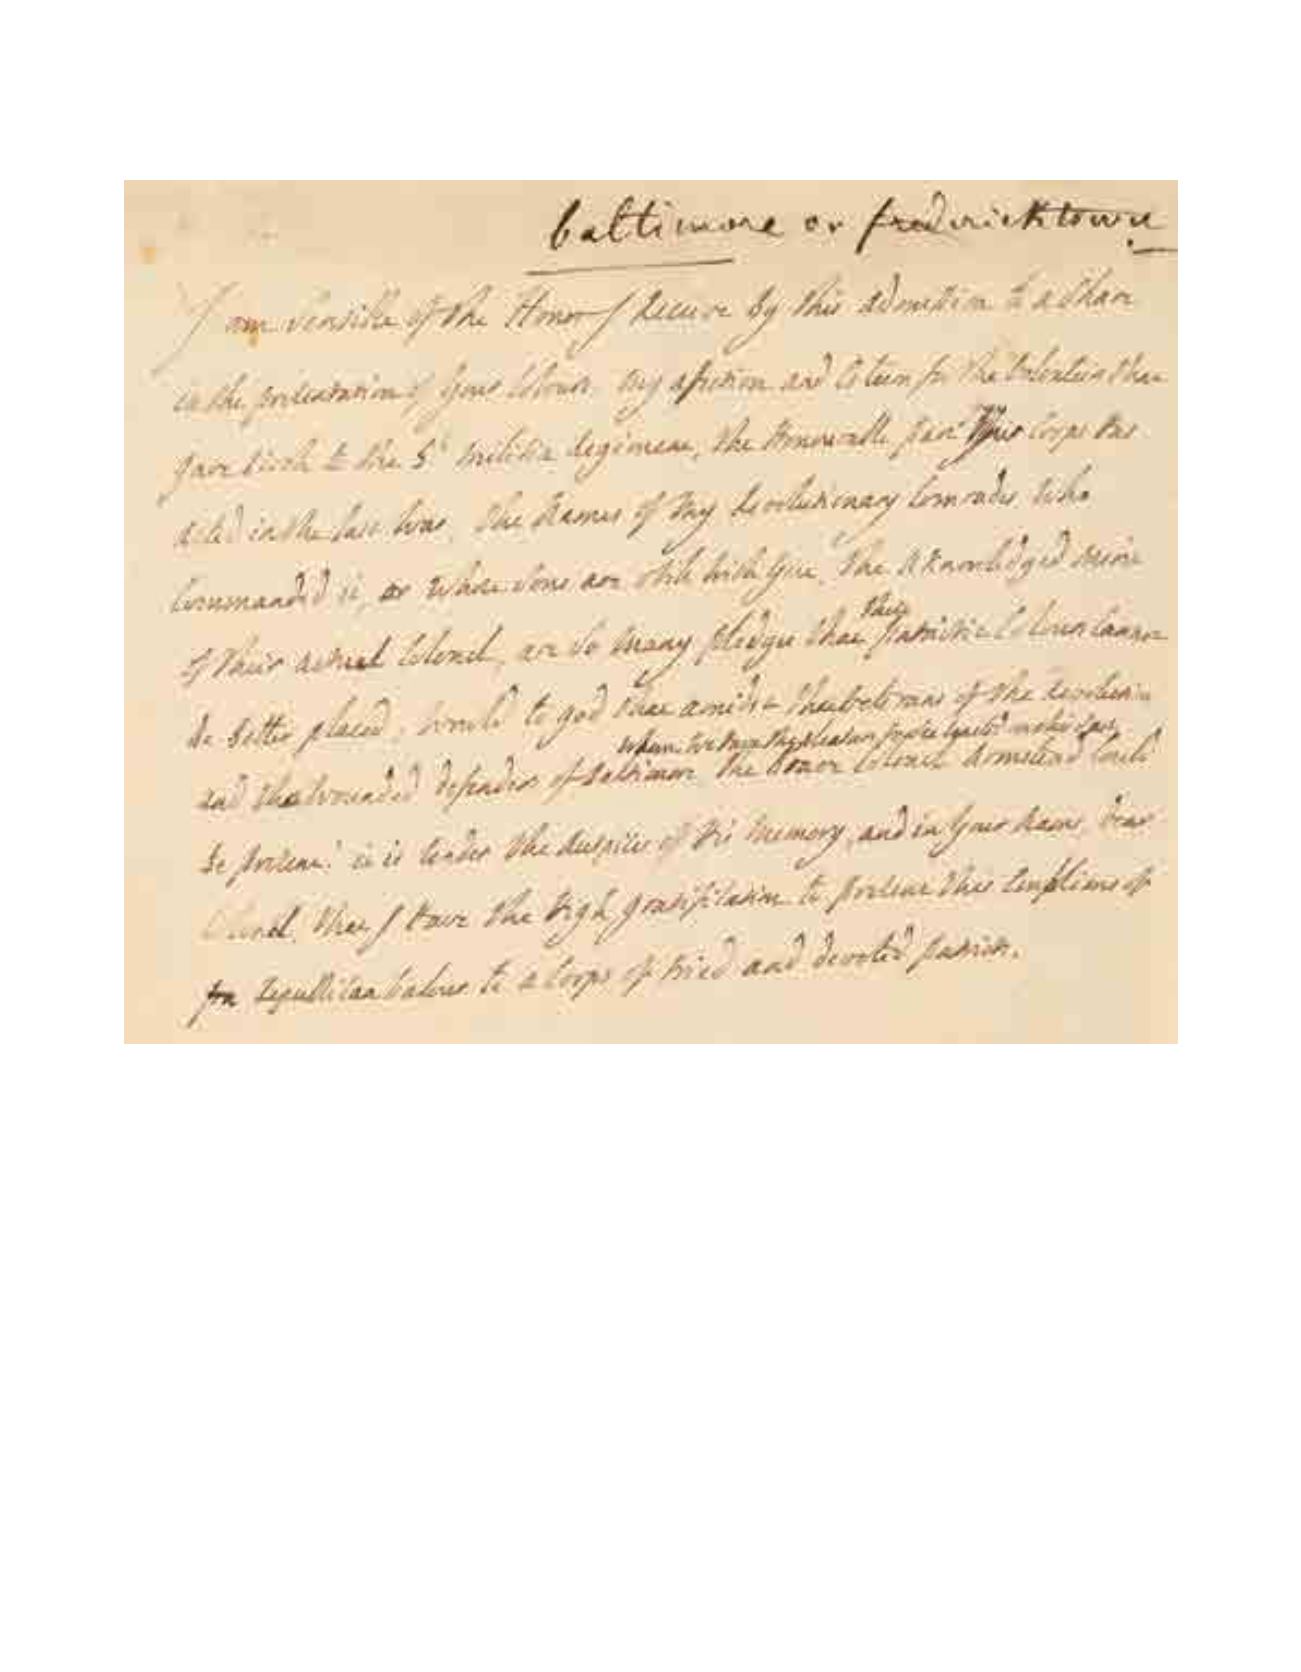 baltimore or fredericktown
I am Sensible of the Honor I Receive by this admission to a Share
in the presentation of Your Colours. My affection and Esteem for the Volunteers that
gave birth to the 5th militia Regiment, the Honourable part This Corps has
acted in the last War, the Names of My Revolutionary Comrades Who
Commanded it, or Whose Sons are Still With You, the Aknowledged Merit
of their actual Colonel, are So Many pledges that patriotic Colours Cannot
their
be better placed. Would to god that amidst the Veterans of the Revolution
and the Wounded defenders of Baltimore, the Colonel Armstead Could
When We Have the pleasure to
be present! it is Under the Auspices of His Memory, and in Your Name, dear
Colonel, that I Have the High gratification to present these Emblems of
Republican Valour to a Corps of tried and devoted patriots.